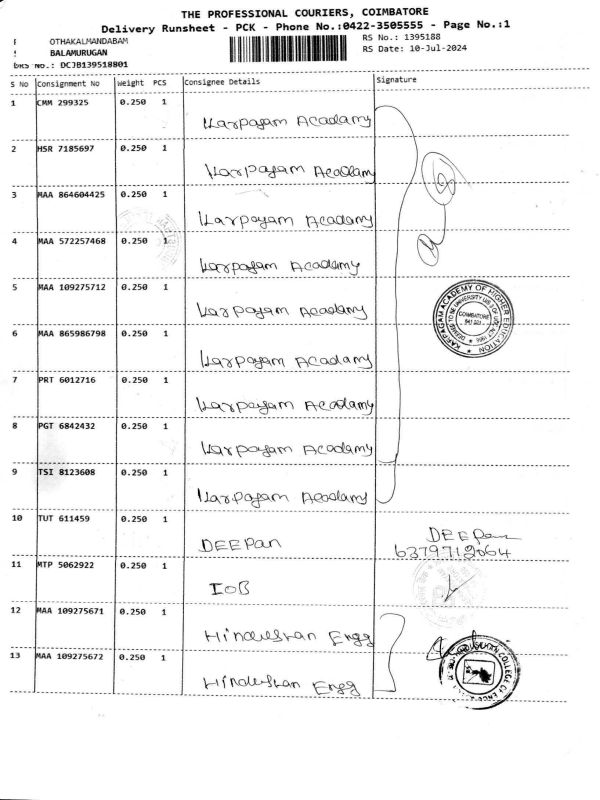 THE PROFESSIONAL COURIERS, COIMBATORE
Delivery Runsheet - PCK - Phone No.:0422-3505555 - Page No.:1
OTHAKALMANDABAM
RS No.: 1395188
BALAMURUGAN
RS Date: 10-Jul-2024
DRS No.: DCJB139518801
S No Consignment No Weight PCS Consignee Details Signature
1 CMM 299325 0.250 1 Karpagam Acadamy
2 HSR 7185697 0.250 1 Karpagam Acadamy
3 MAA 864604425 0.250 1 Karpagam Acadamy
4 MAA 572257468 0.250 1 Karpagam Acadamy
5 MAA 109275712 0.250 1 Karpagam Acadamy
KARPAGAM ACADEMY OF HIGHER EDUCATION
COIMBATORE
641 021
6 MAA 865986798 0.250 1 Karpagam Acadamy
7 PRT 6012716 0.250 1 Karpagam Acadamy
8 PGT 6842432 0.250 1 Karpagam Acadamy
9 TSI 8123608 0.250 1 Karpagam Acadamy
10 TUT 611459 0.250 1 DEEPan DEEPan
6379712064
11 MTP 5062922 0.250 1 IOB
12 MAA 109275671 0.250 1 Hindustan Engg
13 MAA 109275672 0.250 1 Hindustan Engg
COLLEGE OF ENGG